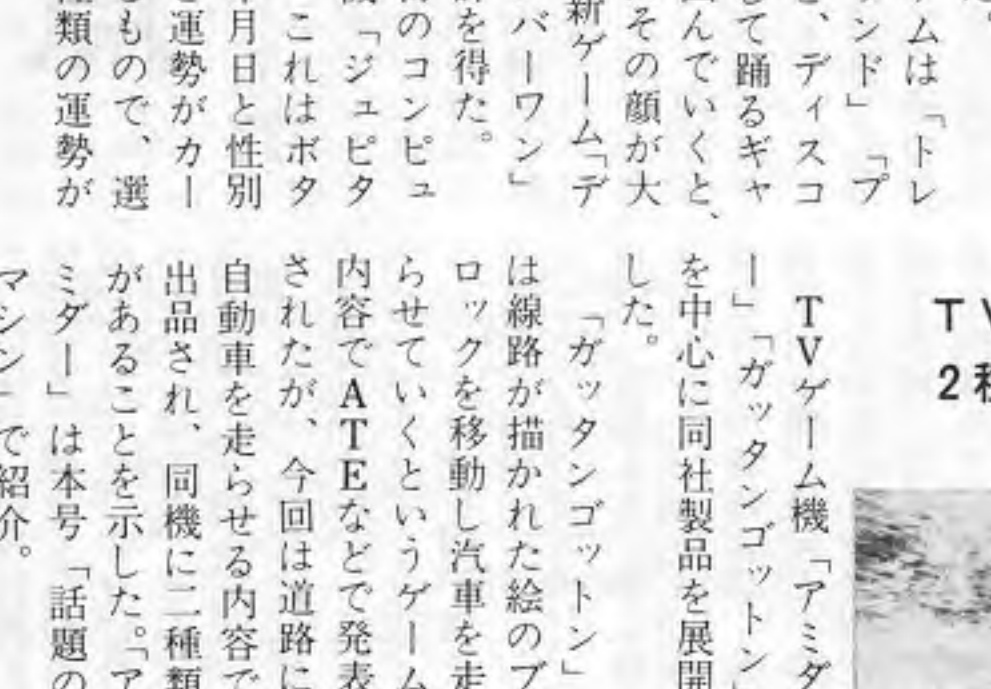 ムは「トレ
ンド」「プ
、ディスコ
して踊るギャ
んでいくと、
その顔が大
新ゲーム「デ
バーワン」
を得た。
のコンピュ
「ジュピタ
これはボタ
月日と性別
運勢がカー
もので、選
類の運勢が
TV
2種
TVゲーム機「アミダ
ー」「ガッタンゴットン」
を中心に同社製品を展開
した。
「ガッタンゴットン」
は線路が描かれた絵のブ
ロックを移動し汽車を走
らせていくというゲーム
内容でATEなどで発表
されたが、今回は道路に
自動車を走らせる内容で
出品され、同機に二種類
があることを示した。「ア
ミダー」は本号「話題の
マシン」で紹介。